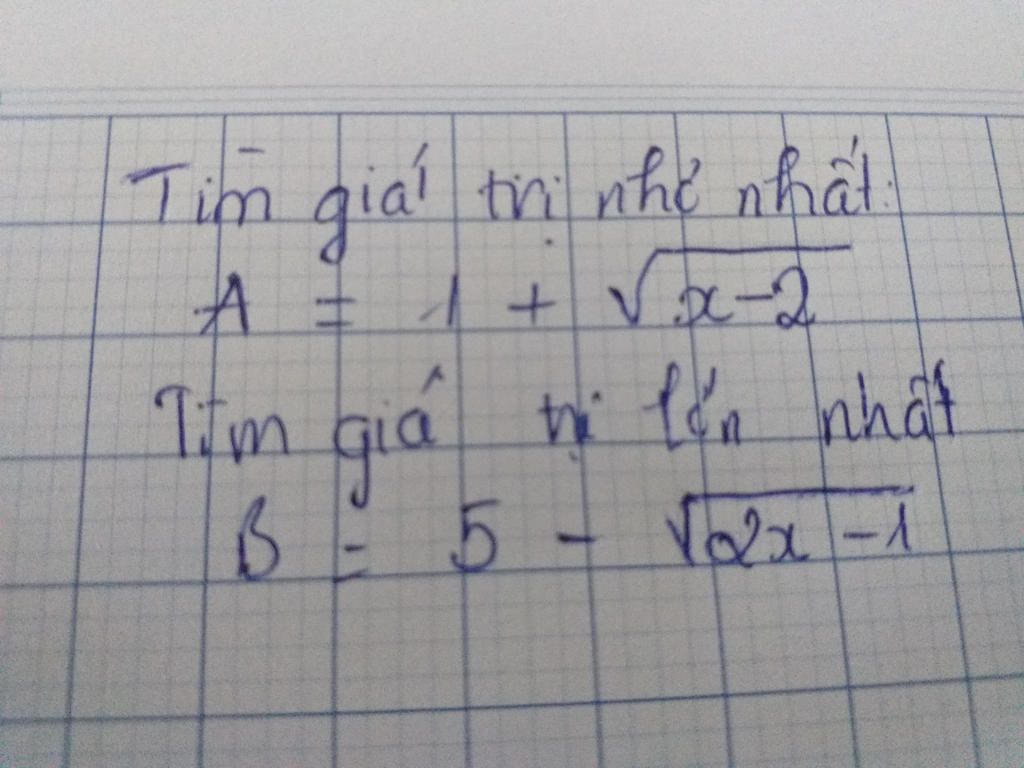 Tìm giá trị nhỏ nhất:
A = 1 + √(x-2)
Tìm giá trị lớn nhất
B = 5 - √(2x-1)